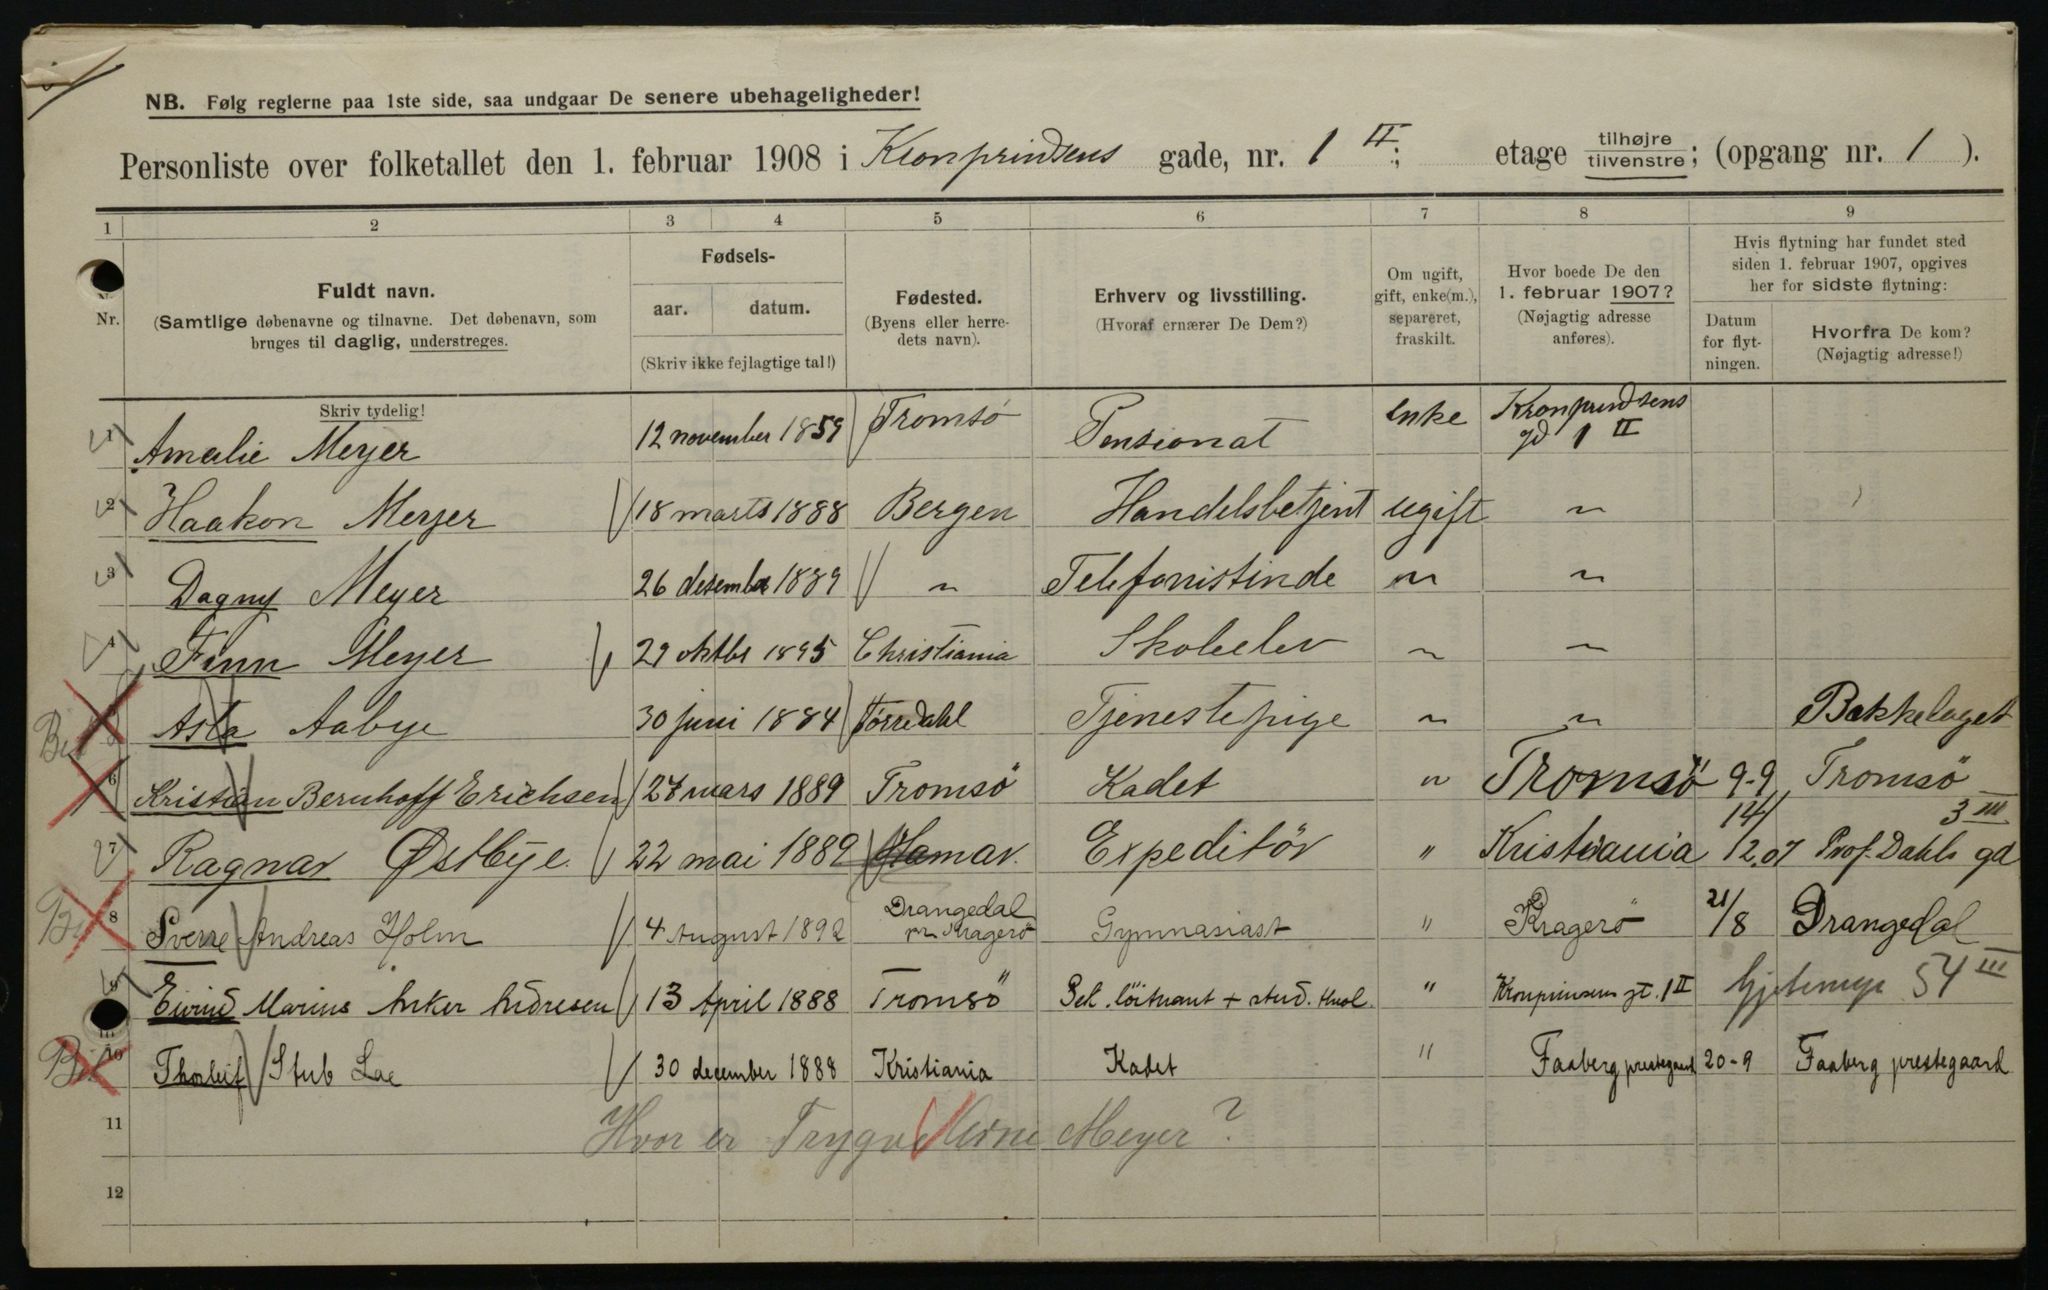 NB. Følg reglerne paa 1ste side, saa undgaar De senere ubehageligheder!
Personliste over folketallet den 1. februar 1908 i Kronprindsens gade, nr. 1 II; etage tilhøjre tilvenstre; (opgang nr. 1 ).
1 2 3 4 5 6 7 8 9
Nr.
Fuldt navn.
(Samtlige døbenavne og tilnavne. Det døbenavn, som
bruges til daglig, understreges.
Skriv tydelig!
Fødsels-
aar. datum.
(Skriv ikke fejlagtige tal!)
Fødested.
(Byens eller herre-
dets navn).
Erhverv og livsstilling.
(Hvoraf ernærer De Dem?)
Om ugift,
gift, enke(m.),
separeret,
fraskilt.
Hvor boede De den
1. februar 1907?
(Nøjagtig adresse
anføres).
Hvis flytning har fundet sted
siden 1. februar 1907, opgives
her for sidste flytning:
Datum
for flyt-
ningen.
Hvorfra De kom?
(Nøjagtig adresse!)
1 Amalie Meyer 12 november 1859 Tromsö Pensionat enke Kronprindsens
gd 1 II
2 Haakon Meyer 18 marts 1888 Bergen Handelsbetjent ugift ~
3 Dagny Meyer 26 desember 1889 ~ Telefonistinde ~ ~
4 Finn Meyer 29 oktbr 1895 Christiania Skoleelev ~ ~
5 Asta Aabye 30 juni 1884 Tørredahl Tjenestepige ~ ~ Bækkelaget
6 Kristian Bernhoff Erichsen 27 mars 1889 Tromsö Kadet " Tromsö 9-9 Tromsö
7 Ragnar Østbye. 22 mai 1889 Hamar. Expeditör " Kristiania 14/12.07 Prof. Dahls gd 3 III
8 Sverre Andreas Holm 4 August 1892 Drangedal
pr Kragerö Gymnasiast " Kragerö 21/8 Drangedal
9 Eivind Marius Anker Andresen 13 April 1888 Tromsö Sek. löitnant + stud. " Kronprinsens gt. 1 II 54 III
10 Thorleif Stub Lae 30 december 1888 Kristiania Kadet " Faaberg prestegaard 20-9 Faaberg prestegaard
11 Hvor er Trygve Arne Meyer?
12